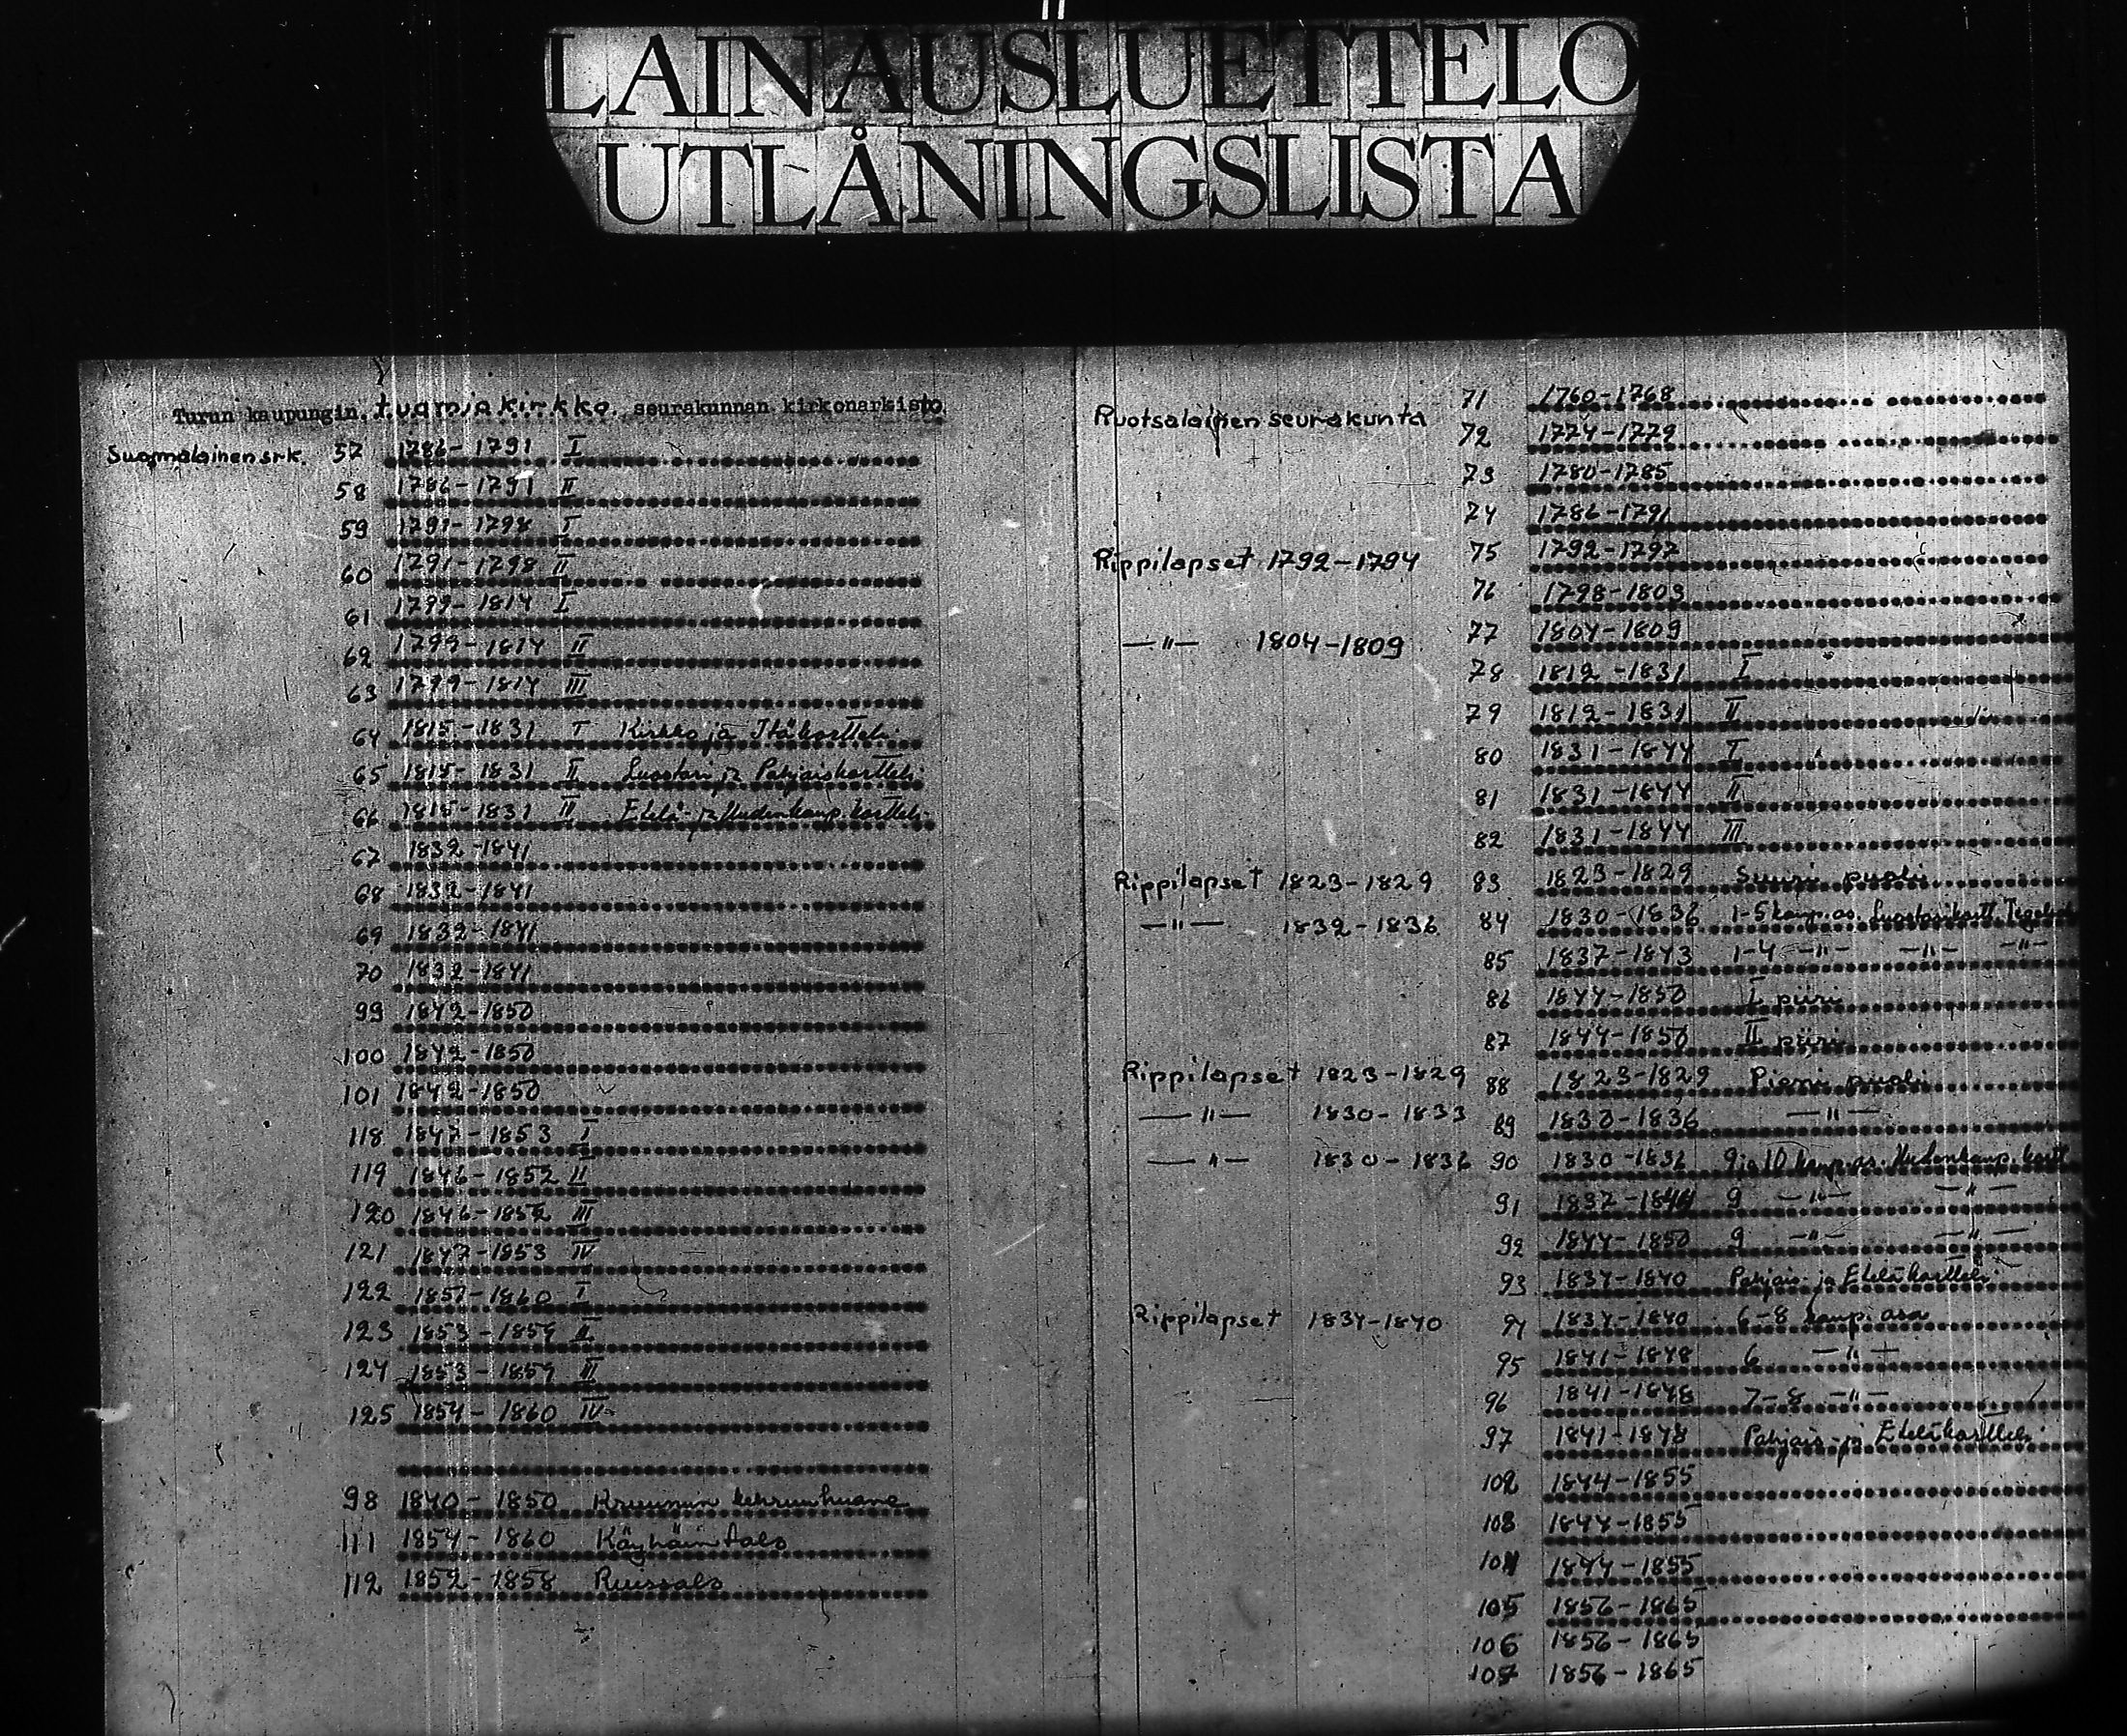 LAINAUSLUETTELO
UTLÅNINGSLISTA
Turun kaupungin tuomiokirkko seurakunnan kirkonarkisto
Suomalainen srk. 57 1786-1791 I
58 1786-1791 II
59 1791-1798 I
60 1791-1798 II
61 1799-1814 I
62 1799-1814 II
63 1799-1814 III
64 1815-1831 I Kirkko ja Itäkortteli
65 1815-1831 II Luostari ja Pohjaiskortteli
66 1815-1831 III Etelä- ja Uudenkaup. kortteli
67 1832-1841
68 1832-1841
69 1832-1841
70 1832-1841
99 1842-1850
100 1842-1850
101 1842-1850
118 1847-1853 I
119 1846-1852 II
120 1846-1852 III
121 1847-1853 IV
122 1857-1860 I
123 1853-1859 II
124 1853-1859 III
125 1854-1860 IV
98 1840-1850 Kruunun kehruuhuone
111 1854-1860 Käyhäin talo
112 1852-1858 Ruissalo
Ruotsalainen seurakunta 71 1760-1768
72 1774-1779
73 1780-1785
74 1786-1791
Rippilapset 1792-1794 75 1792-1797
76 1798-1803
—"— 1804-1809 77 1804-1809
78 1812-1831 I
79 1812-1831 II
80 1831-1844 I
81 1831-1844 II
82 1831-1844 III
Rippilapset 1823-1829 83 1823-1829 Suuri puoli
—"— 1832-1836 84 1830-1836 1-5 kaup. os. Luostarikortt.
85 1837-1843 1-4 —"— —"— —"—
86 1844-1850 I piiri
87 1844-1850 II piiri
Rippilapset 1823-1829 88 1823-1829 Pieni puoli
—"— 1830-1833 89 1830-1836 —"—
—"— 1830-1836 90 1830-1836 9 ja 10 kaup. os. Uudenkaup. kortt
91 1837-1844 9 —"— —"—
92 1844-1850 9 —"— —"—
93 1834-1840 Pohjais- ja Eteläkortteli
Rippilapset 1834-1840 94 1834-1840 6-8 kaup. osa
95 1841-1848 6 —"—
96 1841-1848 7-8 —"—
97 1841-1848 Pohjais- ja Eteläkortteli
102 1844-1855
103 1844-1855
104 1844-1855
105 1856-1865
106 1856-1865
107 1856-1865